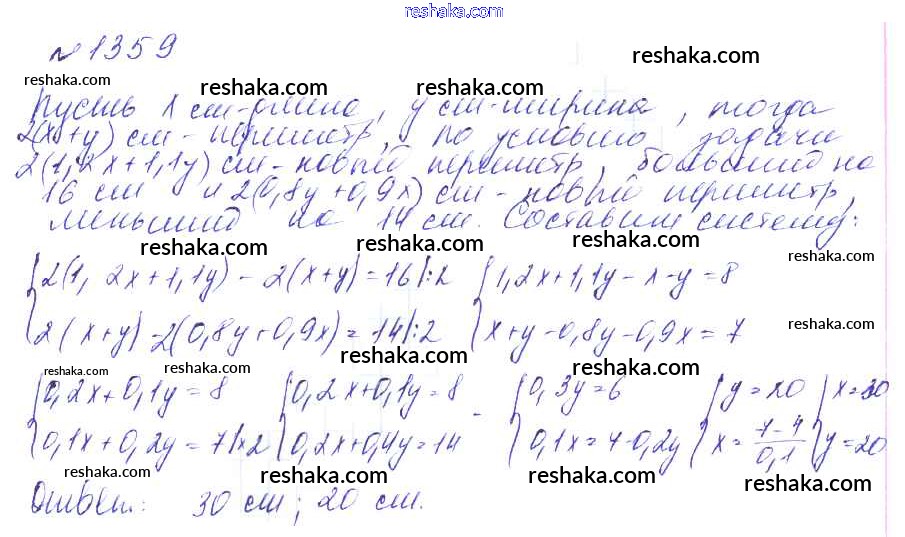 reshaka.com
№1359
reshaka.com
reshaka.com reshaka.com reshaka.com
Пусть x см-длина, y см-ширина, тогда
2(x+y) см - периметр, по условию задачи
2(1,2x+1,1y) см - новый периметр, больший на
16 см и 2(0,8y+0,9x) см - новый периметр,
меньший на 14 см. Составим систему:
reshaka.com reshaka.com reshaka.com
{2(1,2x+1,1y) - 2(x+y) = 16 |:2 {1,2x+1,1y-x-y=8
{2(x+y) - 2(0,8y+0,9x) = 14 |:2 {x+y-0,8y-0,9x=7
reshaka.com
reshaka.com reshaka.com reshaka.com
{0,2x+0,1y=8 {0,2x+0,1y=8 - {0,3y=6 {y=20 {x=30
{0,1x+0,2y=7|x2 {0,2x+0,4y=14 {0,1x=7-0,2y {x=7-4/0,1 {y=20
reshaka.com reshaka.com reshaka.com reshaka.com
Ответ: 30 см; 20 см.
reshaka.com reshaka.com